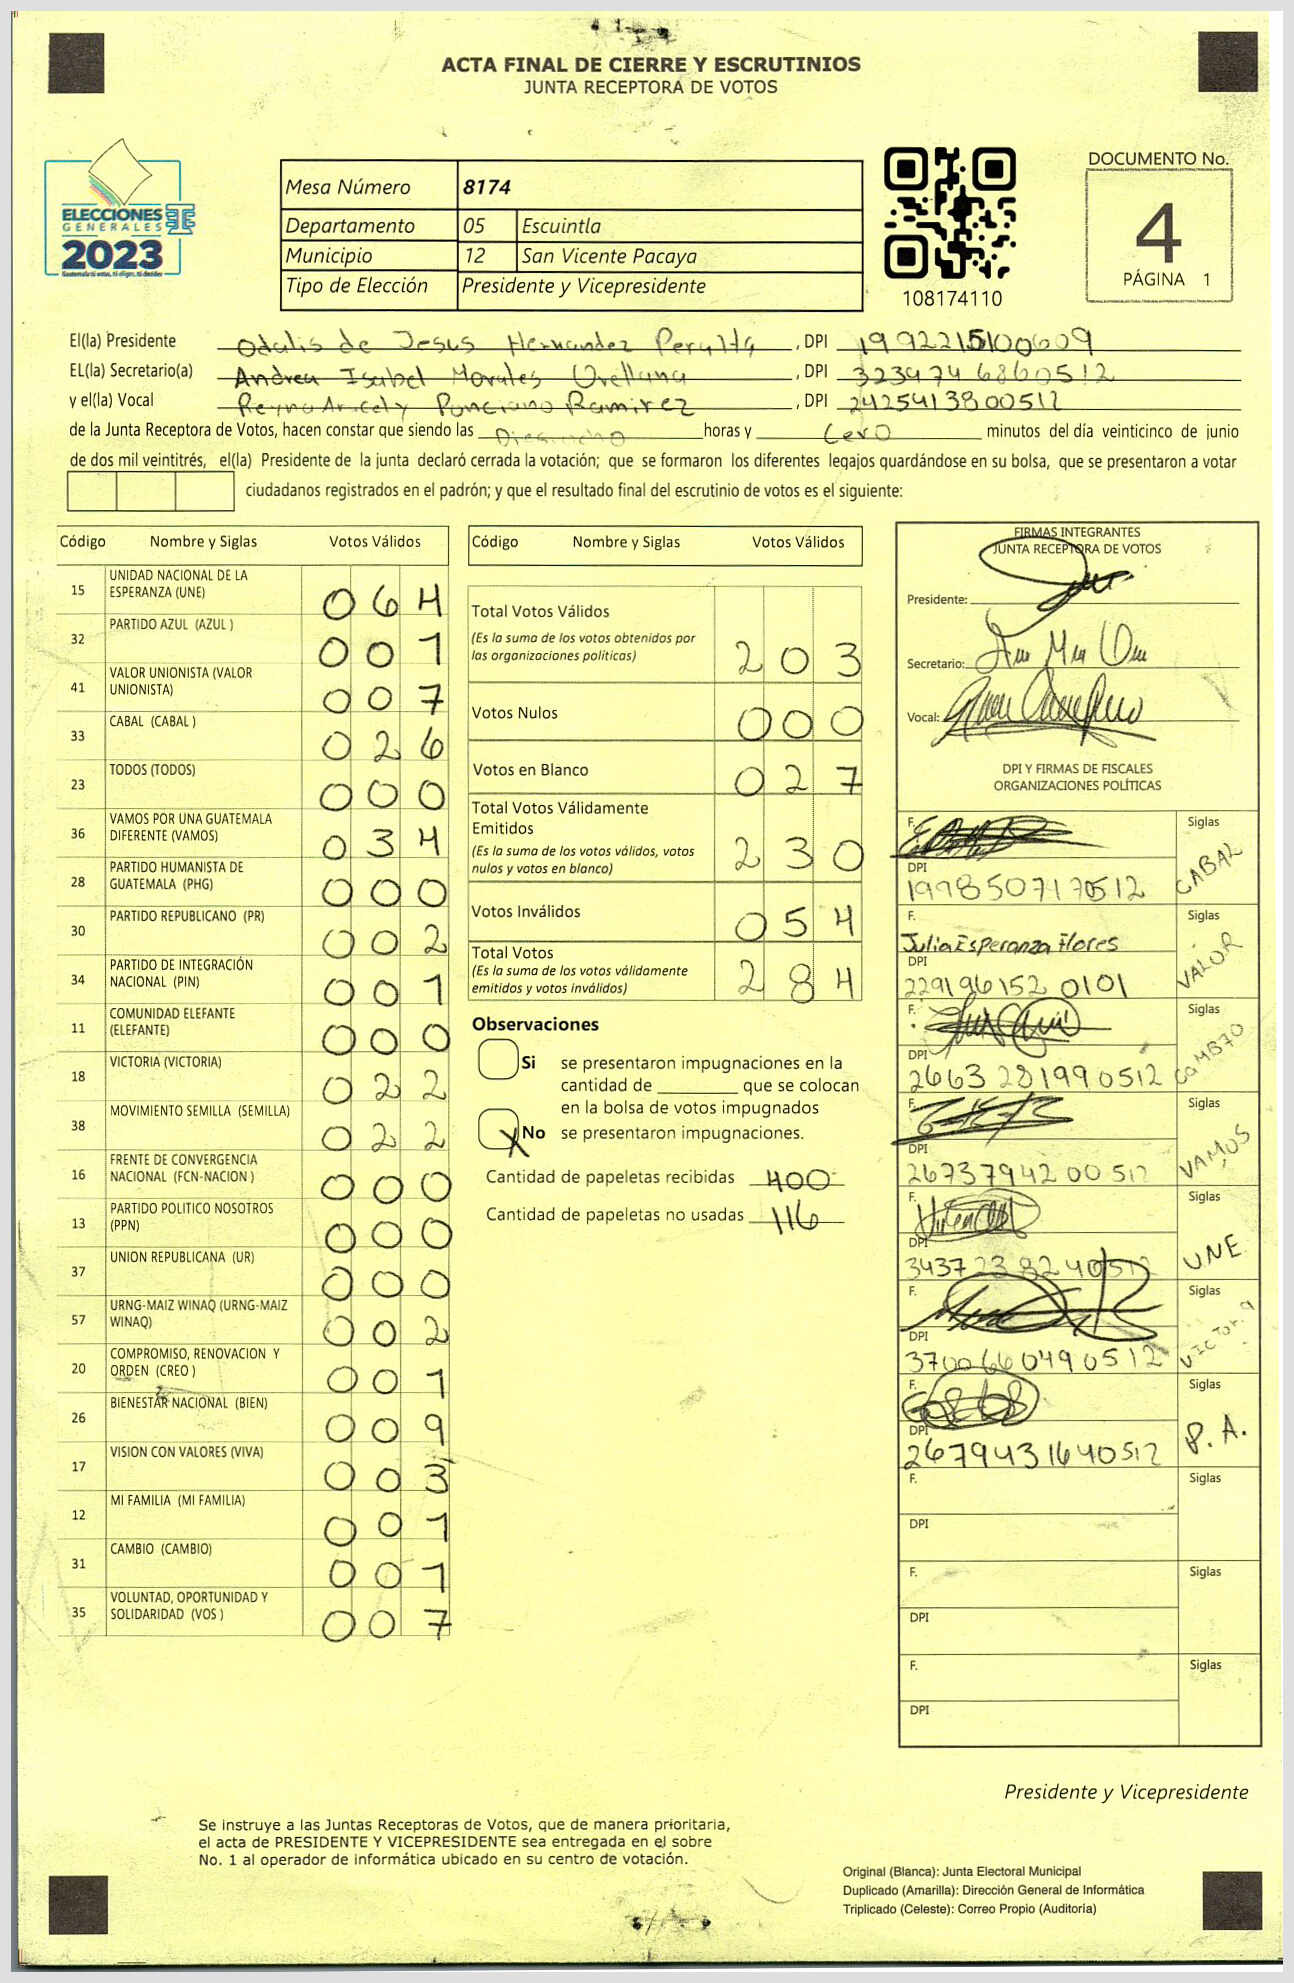 ACTA FINAL DE CIERRE Y ESCRUTINIOS
JUNTA RECEPTORA DE VOTOS
ELECCIONES
GENERALES
2023
Mesa Número 8174
Departamento 05 Escuintla
Municipio 12 San Vicente Pacaya
Tipo de Elección Presidente y Vicepresidente
108174110
DOCUMENTO No.
4
PÁGINA 1
El(la) Presidente Odalis de Jesus Hernandez Peralta, DPI 1992215100609
EL(la) Secretario(a) Andrea Isabel Morales Orellana, DPI 3234746860512
y el(la) Vocal Reyna Aricely Ponciano Ramirez, DPI 2425413800512
de la Junta Receptora de Votos, hacen constar que siendo las Dieciocho horas y Cero minutos del día veinticinco de junio
de dos mil veintitrés, el(la) Presidente de la junta declaró cerrada la votación; que se formaron los diferentes legajos quardándose en su bolsa, que se presentaron a votar
ciudadanos registrados en el padrón; y que el resultado final del escrutinio de votos es el siguiente:
Código Nombre y Siglas Votos Válidos
15 UNIDAD NACIONAL DE LA ESPERANZA (UNE) 064
32 PARTIDO AZUL (AZUL ) 001
41 VALOR UNIONISTA (VALOR UNIONISTA) 007
33 CABAL (CABAL ) 026
23 TODOS (TODOS) 000
36 VAMOS POR UNA GUATEMALA DIFERENTE (VAMOS) 034
28 PARTIDO HUMANISTA DE GUATEMALA (PHG) 000
30 PARTIDO REPUBLICANO (PR) 002
34 PARTIDO DE INTEGRACIÓN NACIONAL (PIN) 001
11 COMUNIDAD ELEFANTE (ELEFANTE) 000
18 VICTORIA (VICTORIA) 022
38 MOVIMIENTO SEMILLA (SEMILLA) 022
16 FRENTE DE CONVERGENCIA NACIONAL (FCN-NACION ) 000
13 PARTIDO POLITICO NOSOTROS (PPN) 000
37 UNION REPUBLICANA (UR) 000
57 URNG-MAIZ WINAQ (URNG-MAIZ WINAQ) 002
20 COMPROMISO, RENOVACION Y ORDEN (CREO ) 001
26 BIENESTAR NACIONAL (BIEN) 009
17 VISION CON VALORES (VIVA) 003
12 MI FAMILIA (MI FAMILIA) 001
31 CAMBIO (CAMBIO) 001
35 VOLUNTAD, OPORTUNIDAD Y SOLIDARIDAD (VOS ) 007
Código Nombre y Siglas Votos Válidos
Total Votos Válidos 203
(Es la suma de los votos obtenidos por
las organizaciones politicas)
Votos Nulos 000
Votos en Blanco 027
Total Votos Válidamente
Emitidos 230
(Es la suma de los votos válidos, votos
nulos y votos en blanco)
Votos Inválidos 054
Total Votos 284
(Es la suma de los votos válidamente
emitidos y votos inválidos)
Observaciones
Si se presentaron impugnaciones en la
cantidad de que se colocan
en la bolsa de votos impugnados
X No se presentaron impugnaciones.
Cantidad de papeletas recibidas 400
Cantidad de papeletas no usadas 116
FIRMAS INTEGRANTES
JUNTA RECEPTORA DE VOTOS
Presidente:
Secretario:
Vocal:
DPI Y FIRMAS DE FISCALES
ORGANIZACIONES POLÍTICAS
F. Siglas CABAL
DPI 1998507170512
F. Julia Esperanza Flores Siglas VALOR
DPI 2291961520101
F. Siglas
DPI 2663281990512
F. Siglas VAMOS
DPI 2673794200512
F. Siglas UNE
DPI 3437238240512
F. Siglas Victoria
DPI 3700660490512
F. Siglas P.A.
DPI 2679431640512
F. Siglas
DPI
F. Siglas
DPI
F. Siglas
DPI
Presidente y Vicepresidente
Se instruye a las Juntas Receptoras de Votos, que de manera prioritaria,
el acta de PRESIDENTE Y VICEPRESIDENTE sea entregada en el sobre
No. 1 al operador de informática ubicado en su centro de votación.
Original (Blanca): Junta Electoral Municipal
Duplicado (Amarilla): Dirección General de Informática
Triplicado (Celeste): Correo Propio (Auditoría)